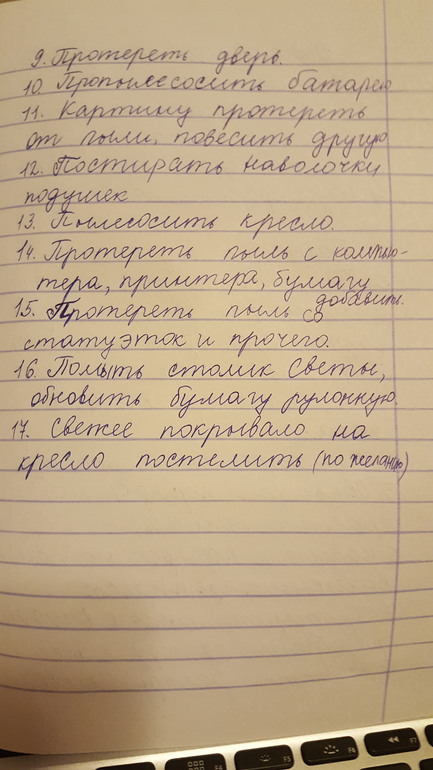 9. Протереть дверь.
10. Пропылесосить батарею
11. Картину протереть
от пыли, повесить другую
12. Постирать наволочки
подушек
13. Пылесосить кресло.
14. Протереть пыль с компью-
тера, принтера, бумагу
добавить.
15. Протереть пыль со
статуэток и прочего.
16. Помыть столик Светы,
обновить бумагу рулонную.
17. Свежее покрывало на
кресло постелить (по желанию)
F4 F5 F6 F7